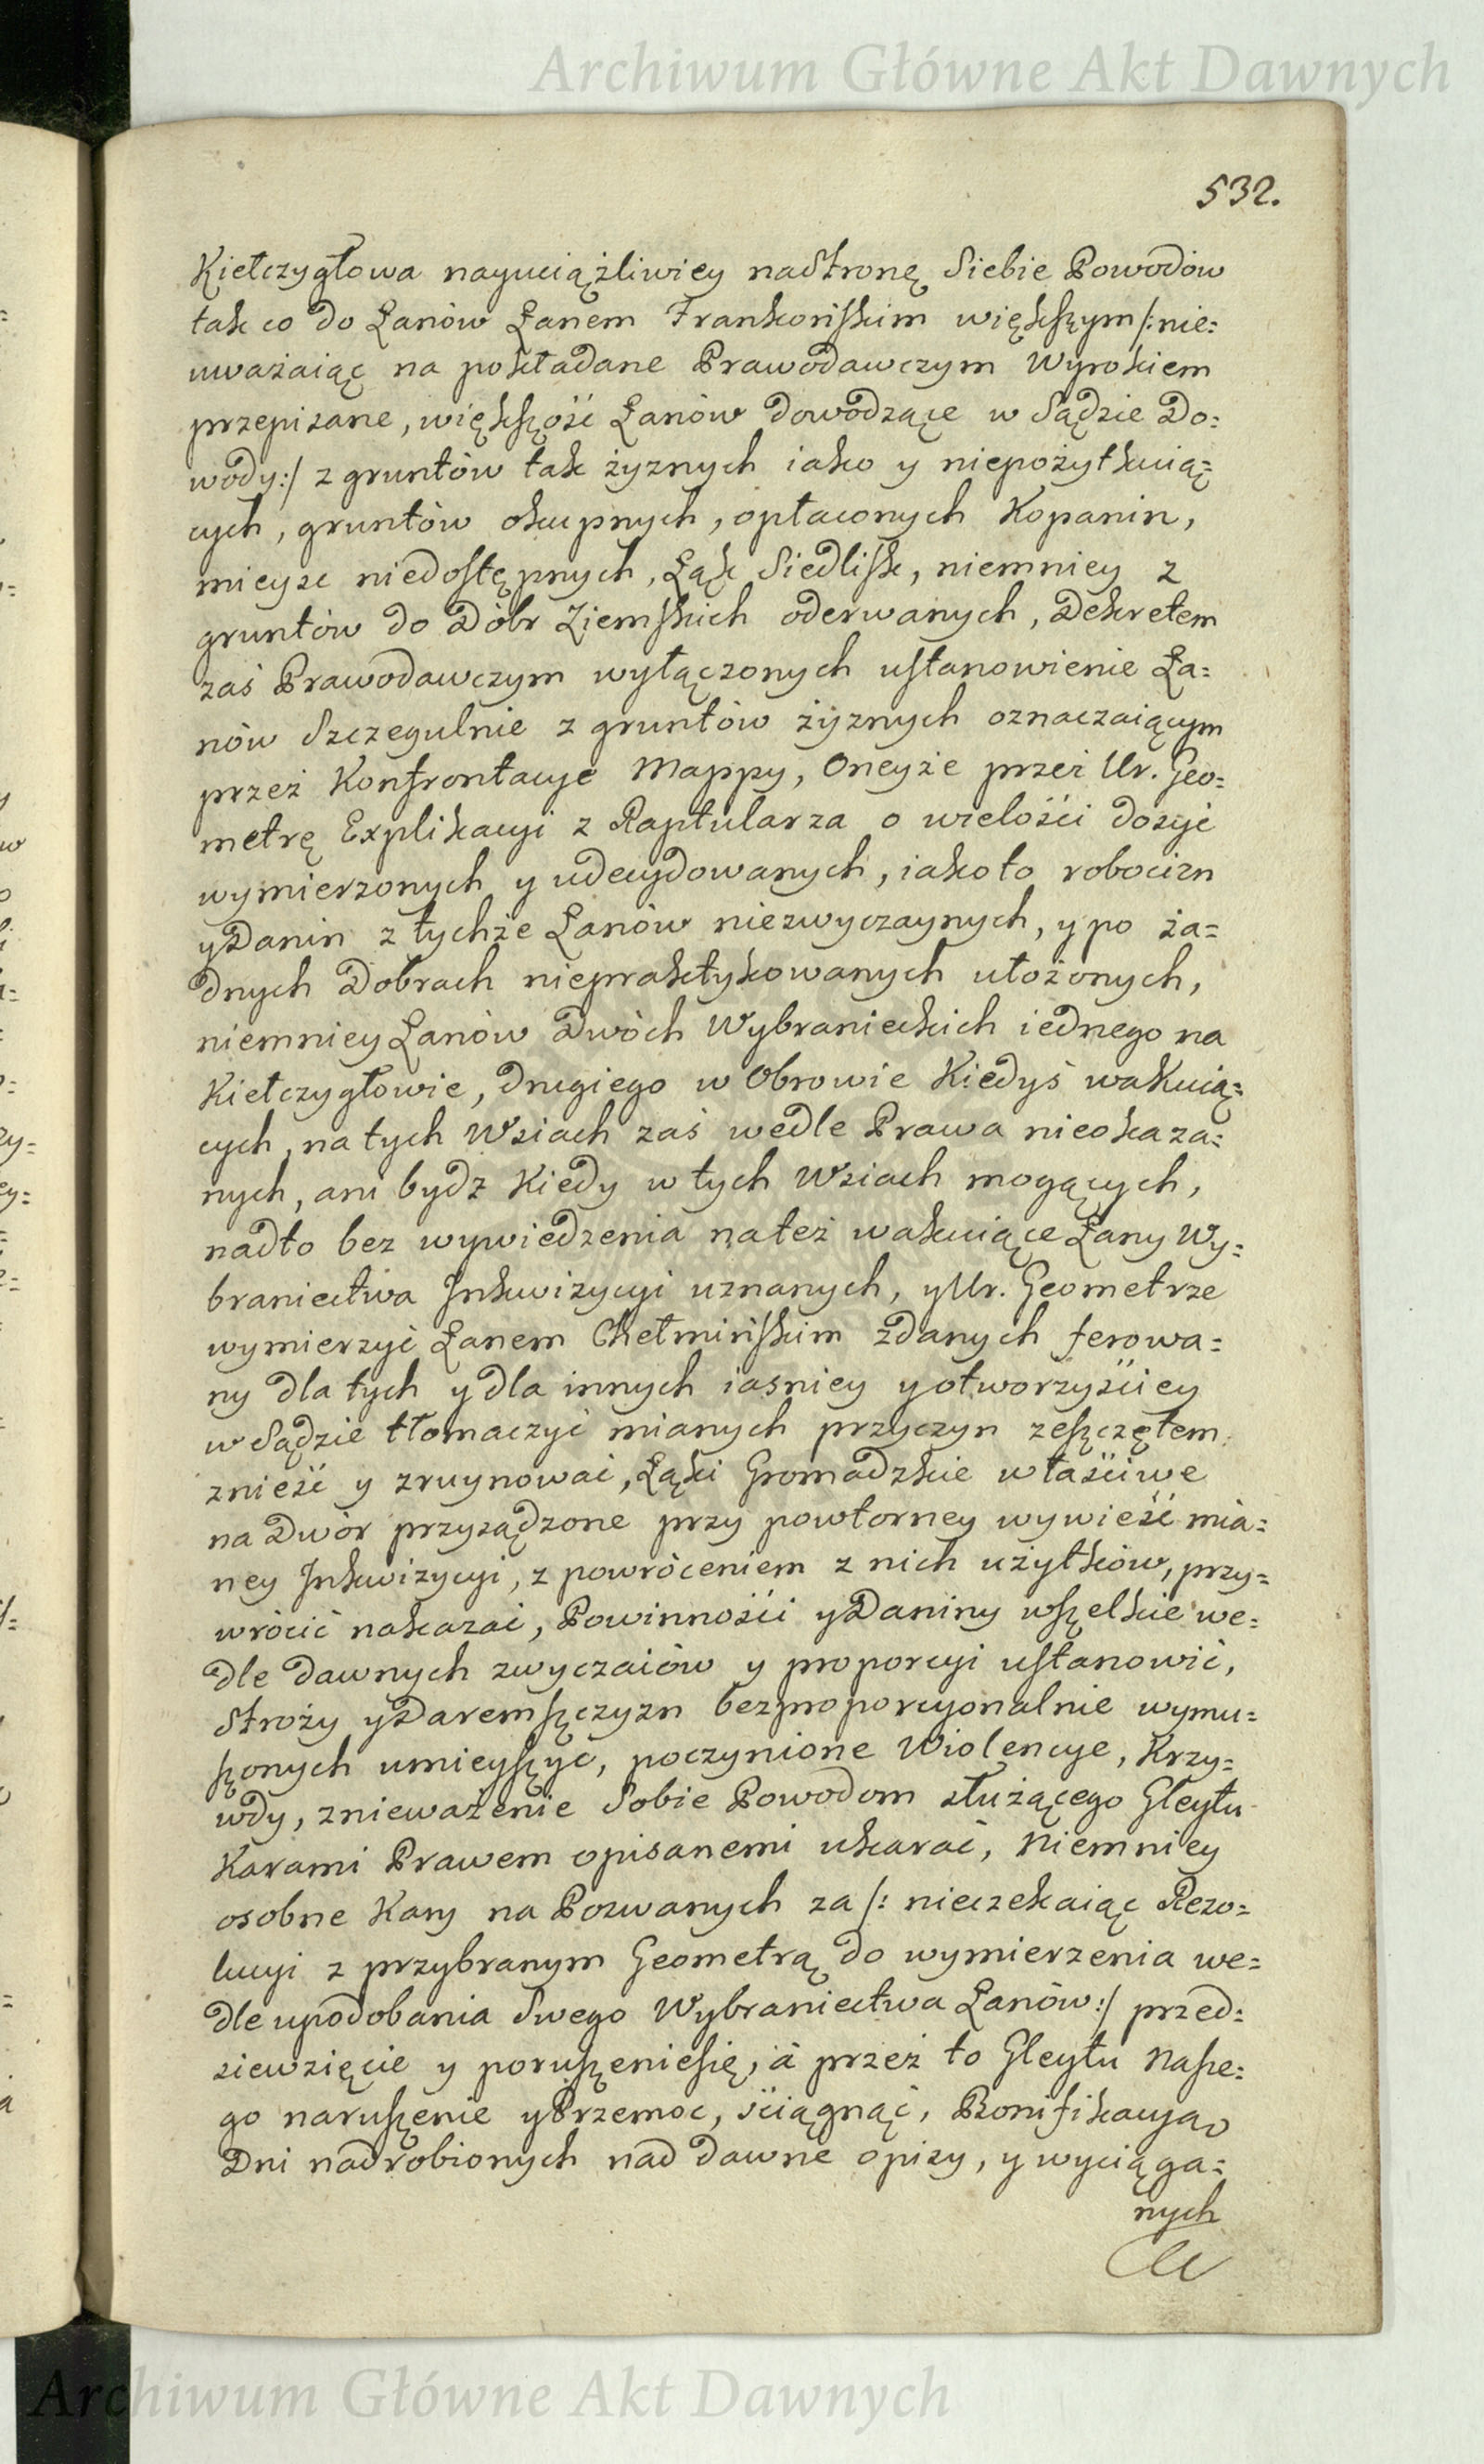 Archiwum Główne Akt Dawnych
532.
Kiełczygłowa nayuciążliwiey nastronę Siebie Powodów
tak co do Łanów Łanem Frankońskim większym/: nie=
uważaiąc na pokładane Prawodawczym Wyrokiem
przepisane, większość Łanów dowodzące w Sądzie Do=
wody:/ z gruntów tak żyznych iako y niepożytkuią=
cych, gruntów okupnych, opłaconych Kopanin,
mieysc niedostępnych, Łąk Siedlisk, niemniey z
gruntów do Dóbr Ziemskich oderwanych, Dekretem
zaś Prawodawczym wyłączonych ustanowienie Ła=
nów Szczegulnie z gruntów żyznych oznaczaiącym
przez Konfrontacye Mappy, Oneyże przez Ur. Geo=
metrę Explikacyi z Raptularza o wielości dosyć
wymierzonych y udecydowanych, iakoto robocizn
y Danin z tychże Łanów niezwyczaynych, y po ża=
dnych Dobrach niepraktykowanych ułożonych,
niemniey Łanów Dwóch Wybranieckich iednego na
Kiełczygłowie, drugiego w Obrowie Kiedyś wakuią=
cych, na tych Wsiach zaś wedle Prawa nieokaza=
nych, ani bydź Kiedy w tych Wsiach mogących,
nadto bez wywiedzenia na też wakuiące Łany Wy=
braniectwa Inkwizycyi uznanych, y Ur. Geometrze
wymierzyć Łanem Chełmińskim zdanych ferowa=
ny dla tych y dla innych iasniey y otworzyściey
w Sądzie tłomaczyć mianych przyczyn zeszczętem
znieść y zruynować, Łąki Gromadzkie właściwe
na Dwór przysądzone przy powtorney wywieść mia=
ney Inkwizycyi, z powróceniem z nich użytków, przy=
wrócić nakazać, Powinności y Daniny wszelkie we=
dle dawnych zwyczaiów y proporcyi ustanowić,
Stroży y Daremszczyzn bezproporcyonalnie wymu=
szonych umieyszyć, poczynione Wiolencye, Krzy=
wdy, znieważenie Sobie Powodom służącego Gleytu
Karami Prawem opisanemi ukarać, Niemniey
osobne Kary na Pozwanych za/: nieczekaiąc Rezo=
lucyi z przybranym Geometrą do wymierzenia we=
dle upodobania Swego Wybraniectwa Łanów:/ przed=
siewzięcie y poruszeniesię, à przez to Gleytu Nasze=
go naruszenie y Przemoc, ściągnąć, Bonifikacyą
Dni nadrobionych nad dawne opisy, y wyciąga=
nych
Archiwum Główne Akt Dawnych